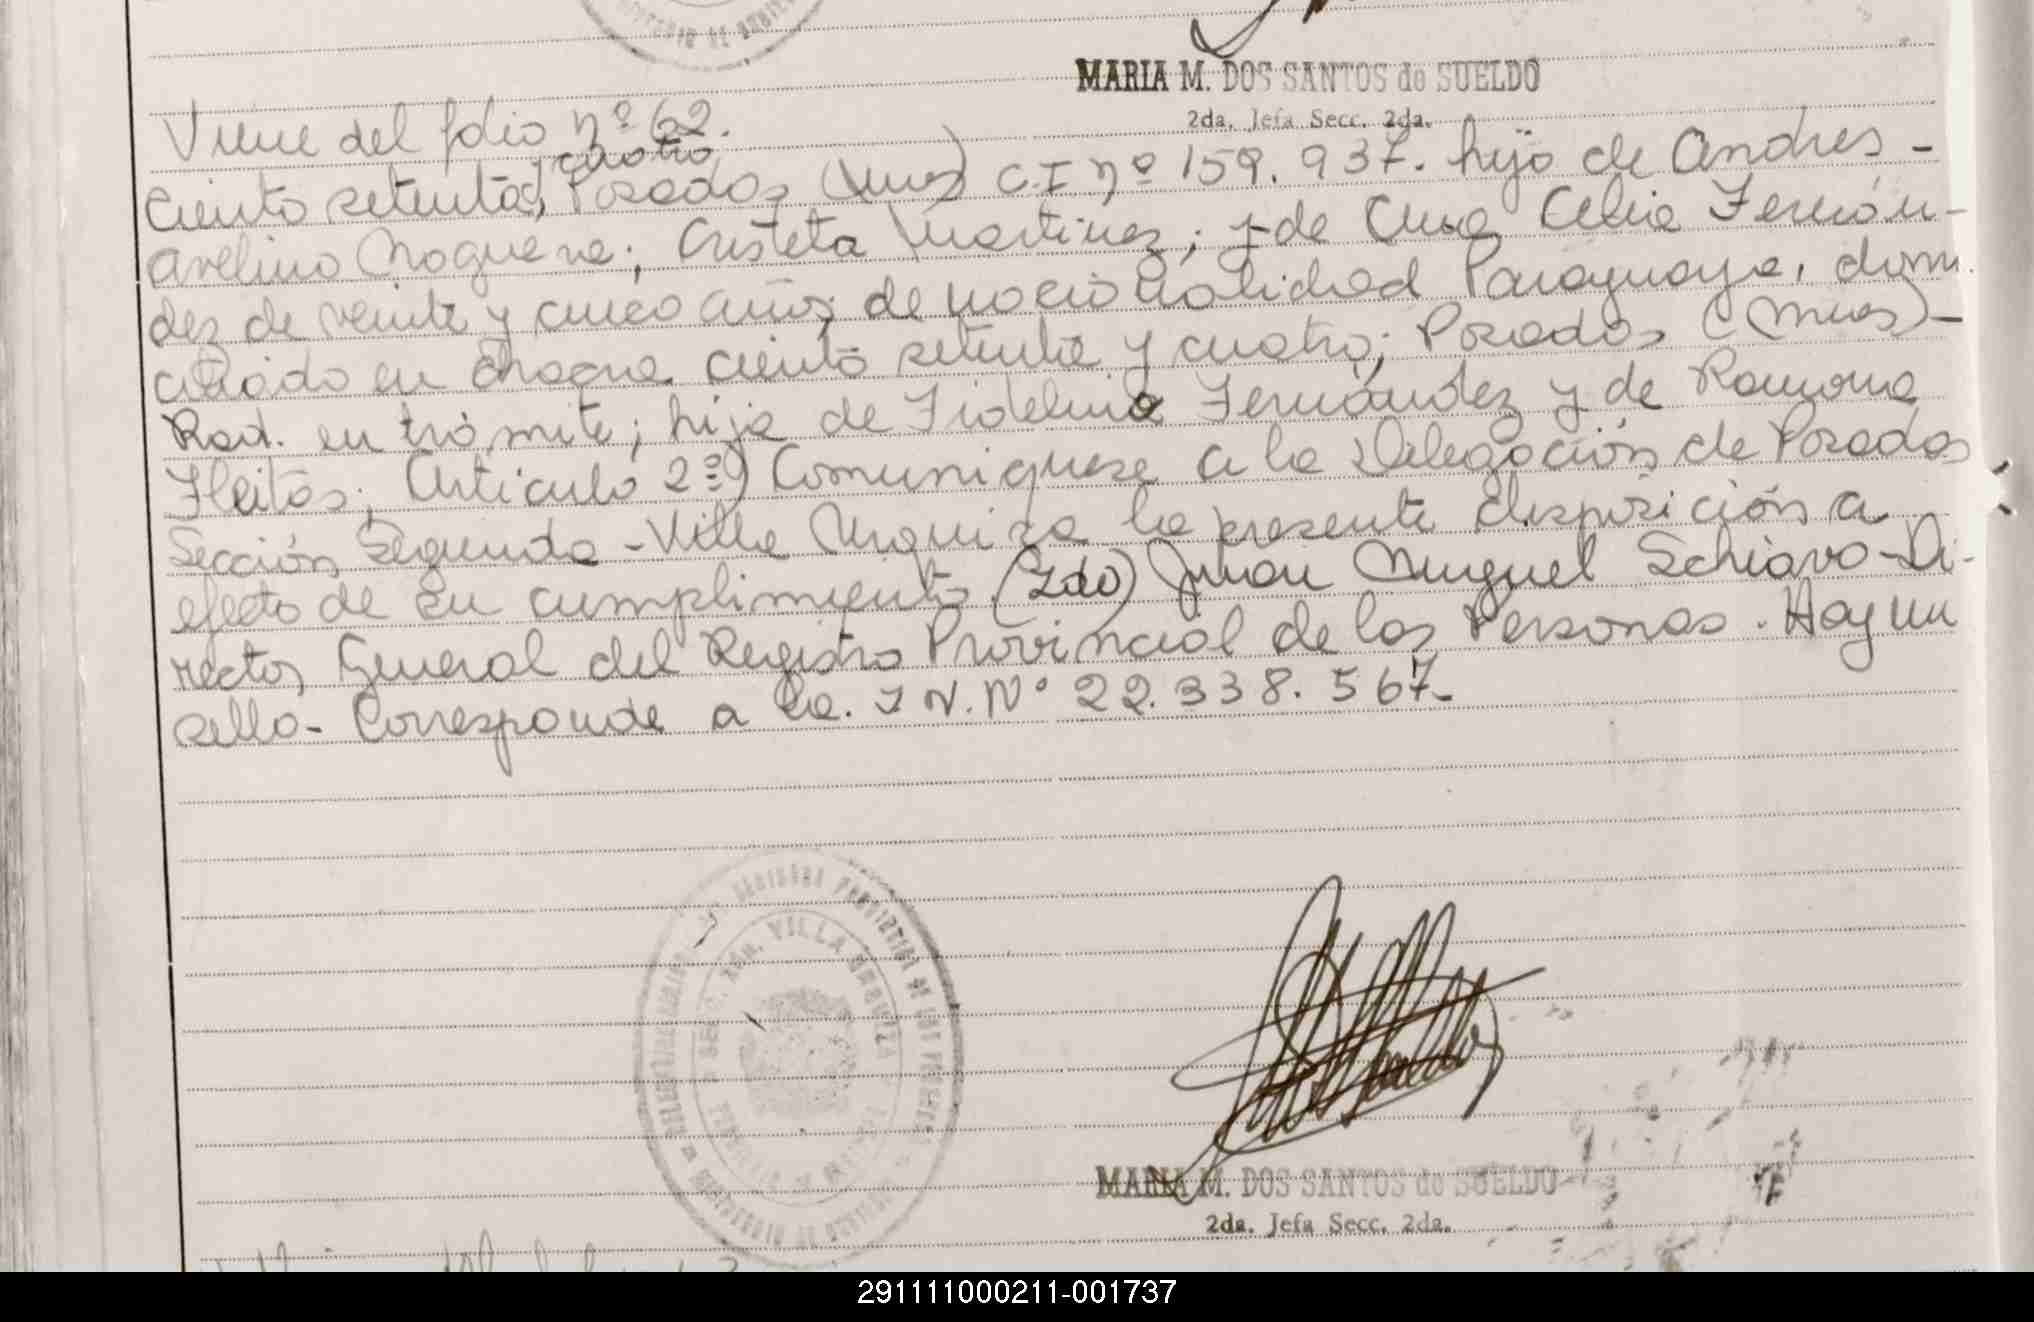 MARIA M. DOS SANTOS de SUELDO
2da. Jefa Secc. 2da.
Viene del folio nº 62.
cuatro
Ciento setenta, Posadas (Mnes) C.I nº 159.937. hijo de Andres -
Avelino Noguera; Cristeta Martinez; y de Celia Fernán-
dez de veinte y cinco años; de nacionalidad Paraguaya, domi
ciliado en chacra ciento setenta y cuatro; Posadas (Mnes) -
Rad. en trámite; hija de Fidelino Fernández y de Ramona
Fleitas; Articulo 2º) Comuniquese a la Delegación de Posadas
Sección Segunda - Villa Urquiza la presente disposición a
efecto de su cumplimiento (Fdo) Juan Miguel Schiavo - Di-
rector General del Registro Provincial de las Personas. Hay un
sello - Corresponde a la. I N. Nº 22.338.567.-
SECC. 2da. VILLA URQUIZA
MARIA M. DOS SANTOS de SUELDO
2da. Jefa Secc. 2da.
291111000211-001737